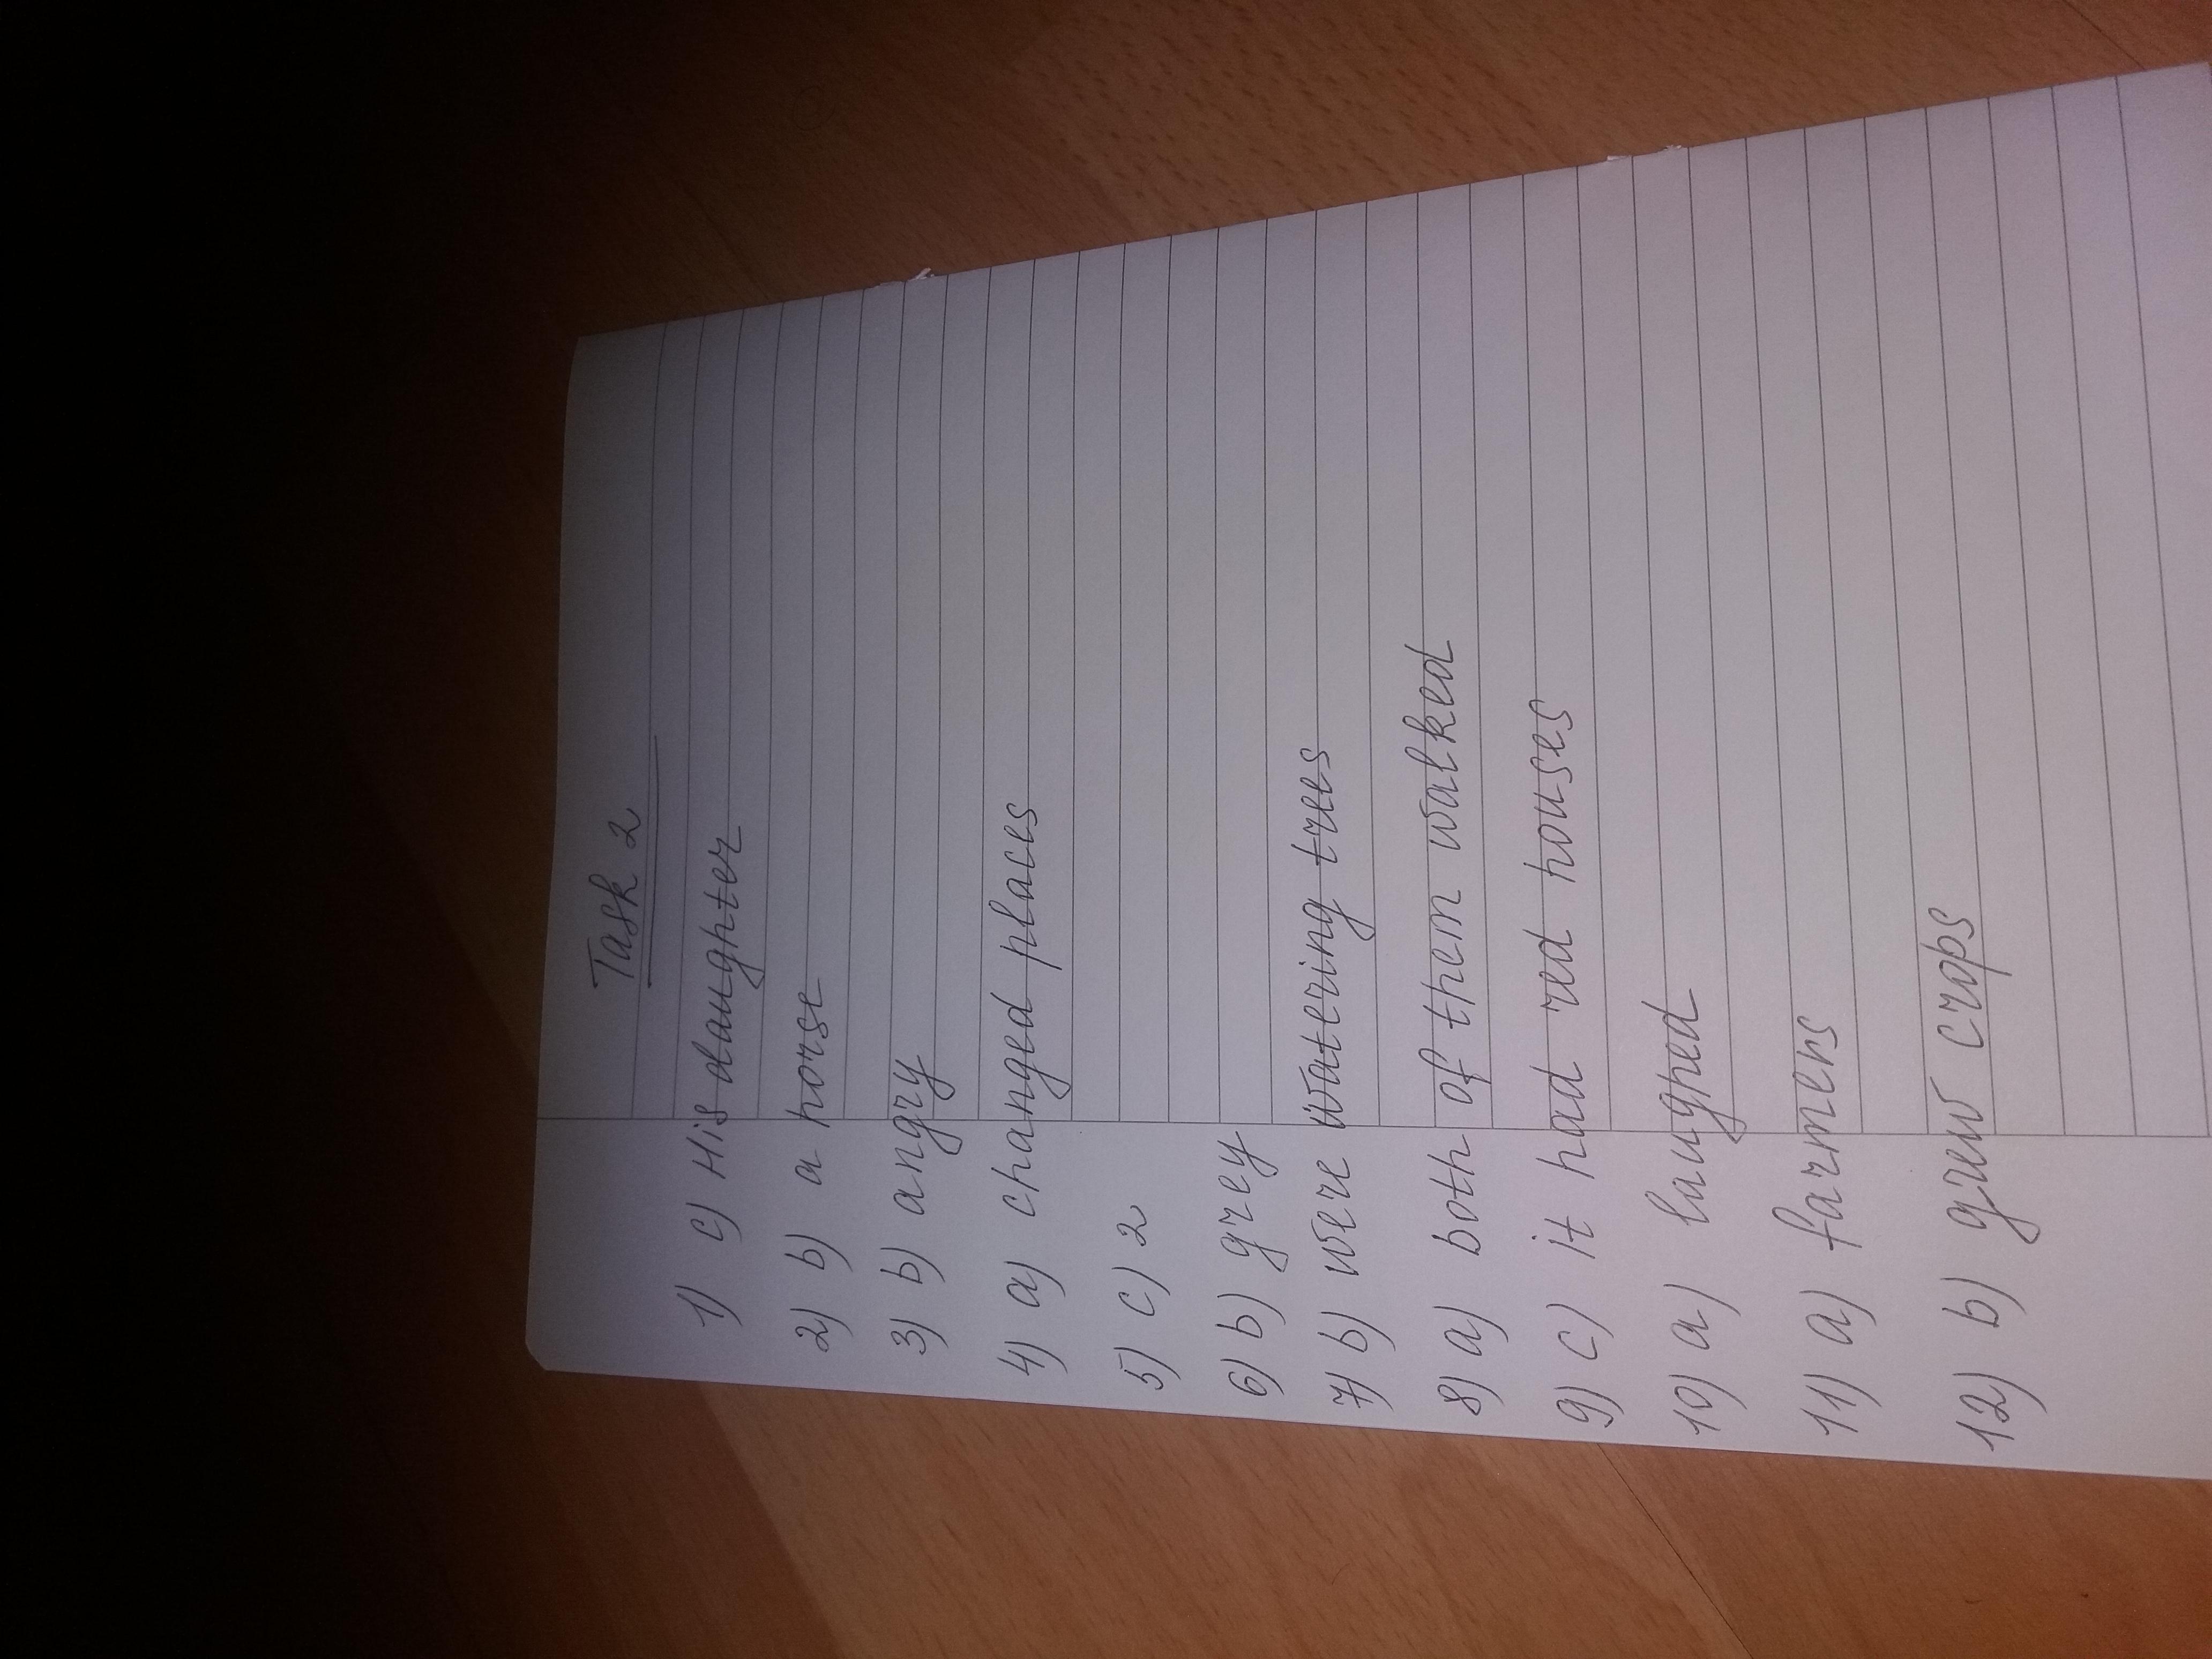 Task 2
1) c) His daughter
2) b) a horse
3) b) angry
4) a) changed places
5) c) 2
6) b) grey
7) b) were watering trees
8) a) both of them walked
9) c) it had red houses
10) a) laughed
11) a) farmers
12) b) grew crops